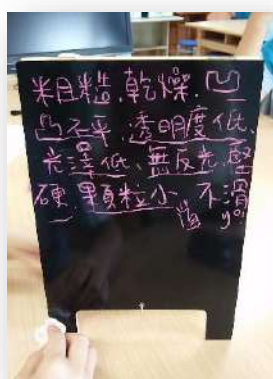 粗糙、乾燥、凹
凸不平、透明度低、
光澤低、無反光、堅
硬、顆粒小、不滑